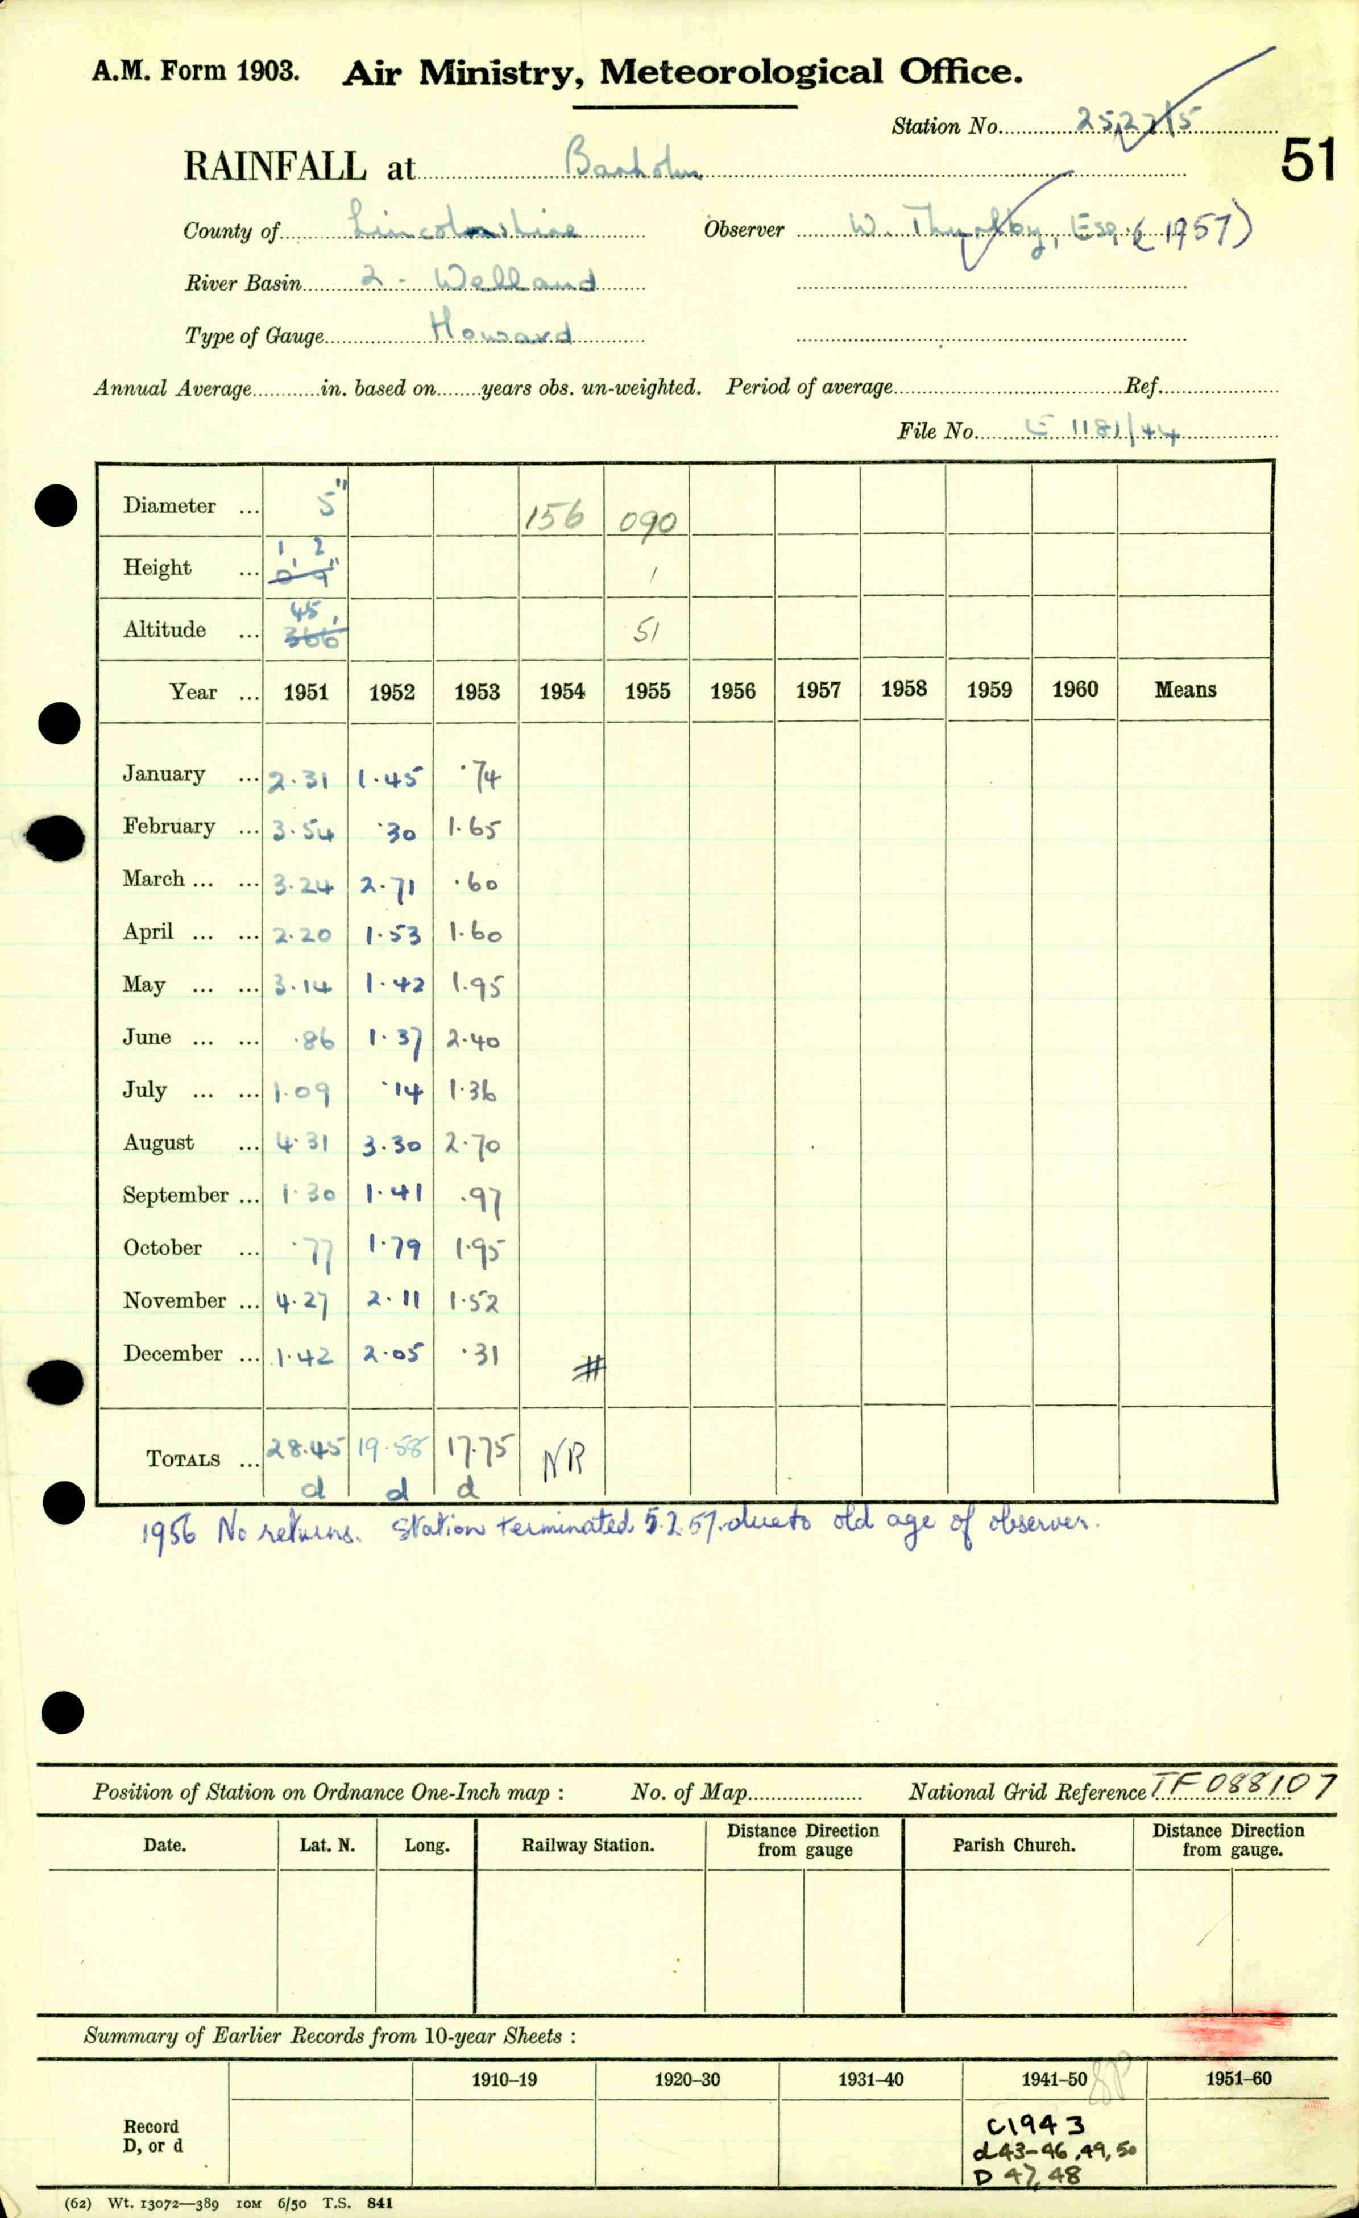 A.M. Form 1903. Air Ministry, Meteorological Office.
Station No. 2522/5
51
RAINFALL at Barholm
County of Lincolnshire Observer W. Thurlby, Esq. (1957)
River Basin 2 - Welland
Type of Gauge Howard
Annual Average in. based on years obs. un-weighted. Period of average Ref.
File No. E 1181/44
Diameter ... 5" 156 090
1 2
Height ... 0' 9" 1
45
Altitude ... 366' 51
Year ... 1951 1952 1953 1954 1955 1956 1957 1958 1959 1960 Means
January ... 2.31 1.45 .74
February ... 3.54 .30 1.65
March ... ... 3.24 2.71 .60
April ... ... 2.20 1.53 1.60
May ... ... 3.14 1.42 1.95
June ... ... .86 1.37 2.40
July ... ... 1.09 .14 1.36
August ... 4.31 3.30 2.70
September ... 1.30 1.41 .97
October ... .77 1.79 1.95
November ... 4.27 2.11 1.52
December ... 1.42 2.05 .31 #
TOTALS ... 28.45 19.58 17.75 NR
d d d
1956 No returns. Station terminated 5.2.57. due to old age of observer.
Position of Station on Ordnance One-Inch map : No. of Map National Grid Reference TF 088107
Date. Lat. N. Long. Railway Station. Distance from Direction gauge Parish Church. Distance from Direction gauge.
Summary of Earlier Records from 10-year Sheets :
1910–19 1920–30 1931–40 1941–50 1951–60
Record
D, or d
C1943
d 43-46, 49, 50
D 47, 48
(62) Wt. 13072—389 10M 6/50 T.S. 841